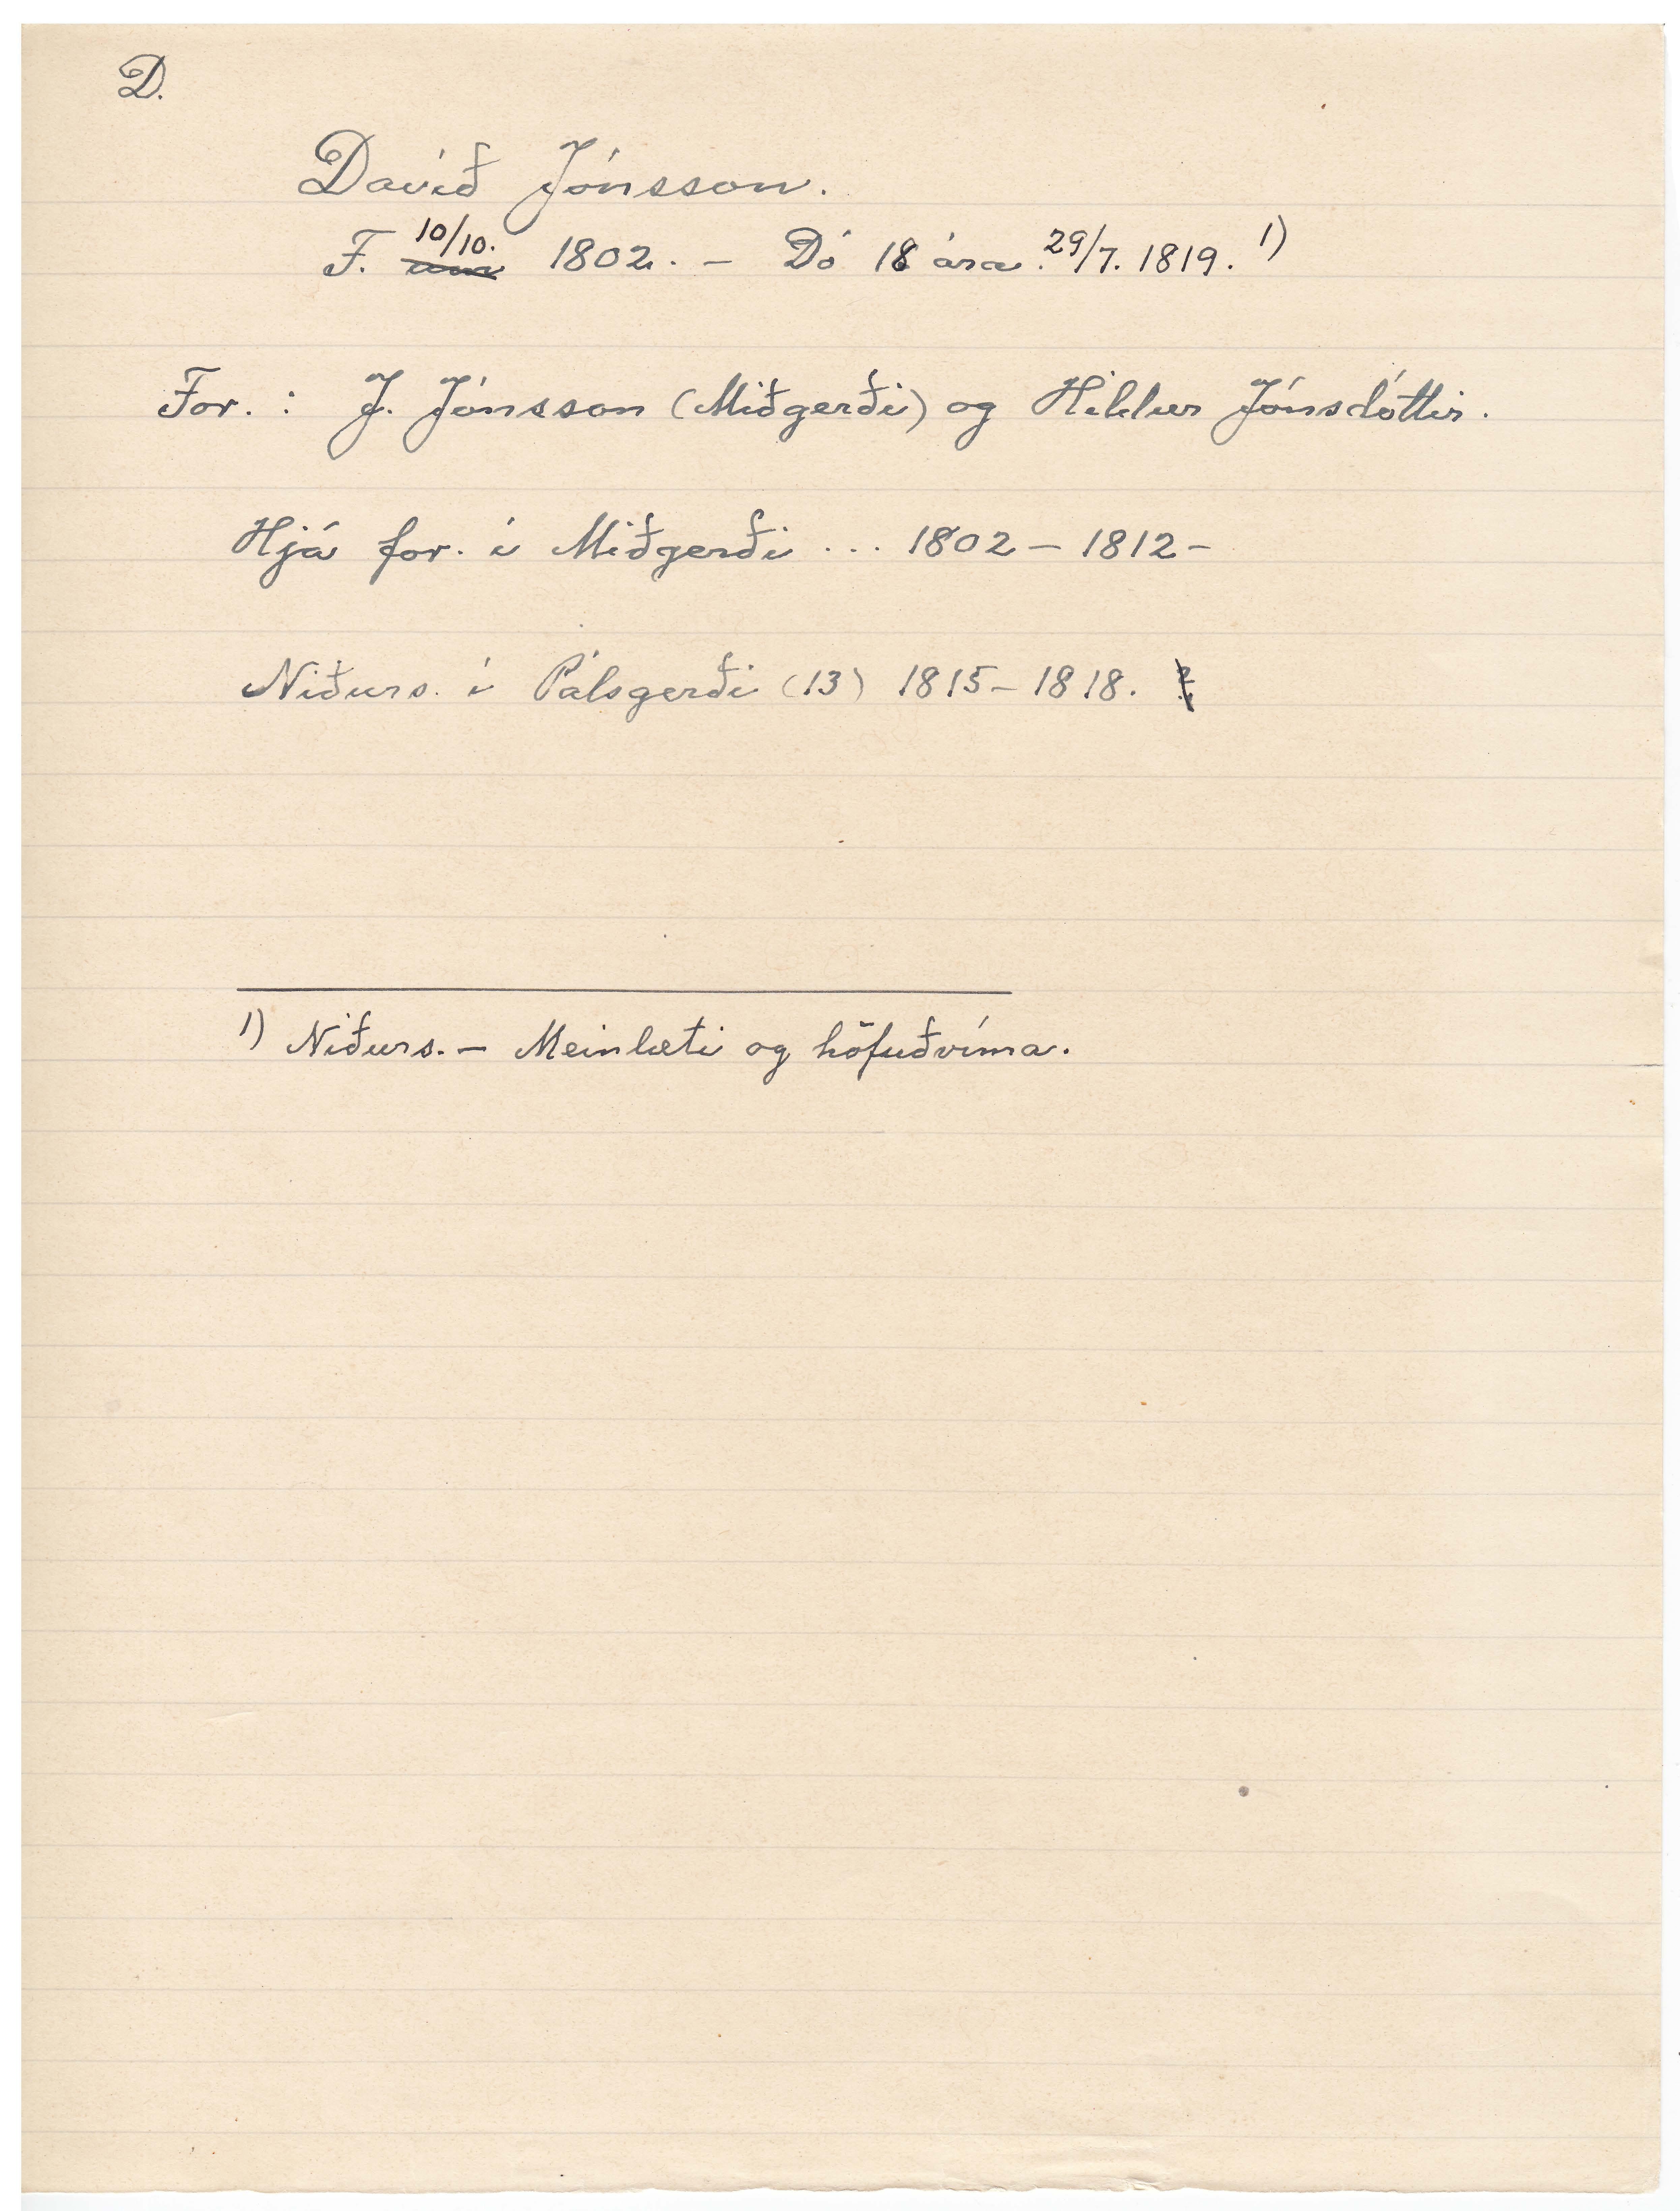 D.
Davíð Jónsson.
F. 10/10. 1802. – Dó 18 ára. 29/7. 1819. 1)
For. : J. Jónsson (Miðgerði) og Hildur Jónsdóttir.
Hjá for. í Miðgerði ... 1802 – 1812 –
Niðurs. í Pálsgerði (13) 1815 – 1818.
1) Niðurs. – Meinlæti og höfuðvíma.